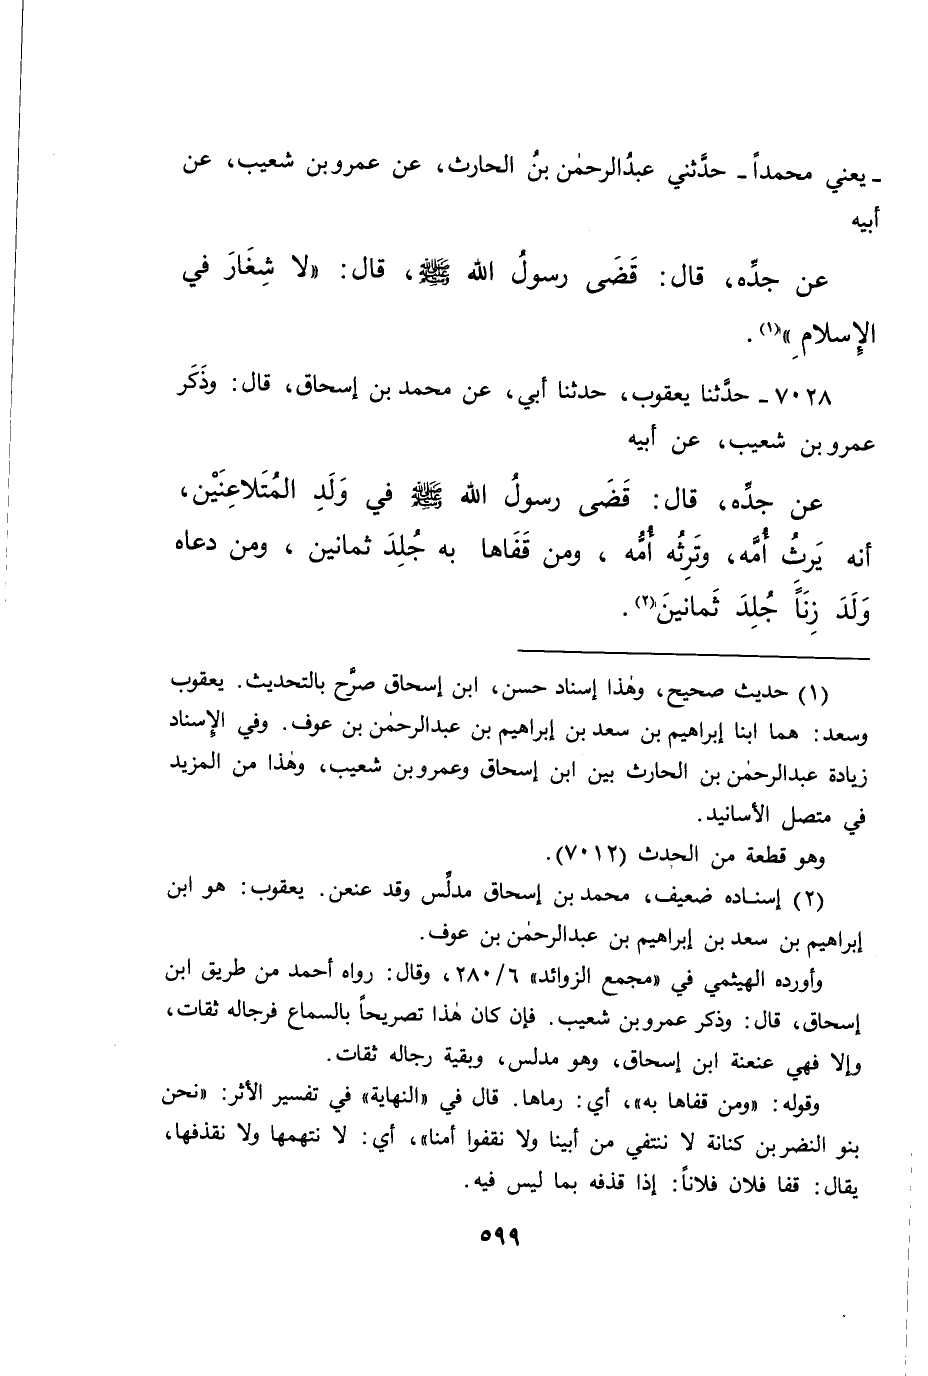 ـ يعني محمداً ـ حدَّثني عبدُالرحمٰن بنُ الحارث، عن عمرو بن شعيب، عن
أبيه
عن جدِّه، قال: قَضَى رسولُ الله ﷺ، قال: «لا شِغَارَ في
الإِسلامِ»(١).
٧٠٢٨ ـ حدَّثنا يعقوب، حدثنا أبي، عن محمد بن إسحاق، قال: وذَكَر
عمرو بن شعيب، عن أبيه
عن جدِّه، قال: قَضَى رسولُ الله ﷺ في وَلَدِ المُتَلاعِنَيْن،
أنه يَرِثُ أُمَّه، وتَرِثُه أُمُّه، ومن قَفَاها به جُلِدَ ثمانين، ومن دعاه
وَلَدَ زِنَاً جُلِدَ ثَمانينَ(٢).
(١) حديث صحيح، وهٰذا إسناد حسن، ابن إسحاق صرَّح بالتحديث. يعقوب
وسعد: هما ابنا إبراهيم بن سعد بن إبراهيم بن عبدالرحمٰن بن عوف. وفي الإِسناد
زيادة عبدالرحمٰن بن الحارث بين ابن إسحاق وعمرو بن شعيب، وهٰذا من المزيد
في متصل الأسانيد.
وهو قطعة من الحدث (٧٠١٢).
(٢) إسناده ضعيف، محمد بن إسحاق مدلِّس وقد عنعن. يعقوب: هو ابن
إبراهيم بن سعد بن إبراهيم بن عبدالرحمٰن بن عوف.
وأورده الهيثمي في «مجمع الزوائد» ٢٨٠/٦، وقال: رواه أحمد من طريق ابن
إسحاق، قال: وذكر عمرو بن شعيب. فإن كان هٰذا تصريحاً بالسماع فرجاله ثقات،
وإلا فهي عنعنة ابن إسحاق، وهو مدلس، وبقية رجاله ثقات.
وقوله: «ومن قفاها به»، أي: رماها. قال في «النهاية» في تفسير الأثر: «نحن
بنو النضر بن كنانة لا ننتفي من أبينا ولا نقفوا أمنا»، أي: لا نتهمها ولا نقذفها،
يقال: قفا فلان فلاناً: إذا قذفه بما ليس فيه.
٥٩٩